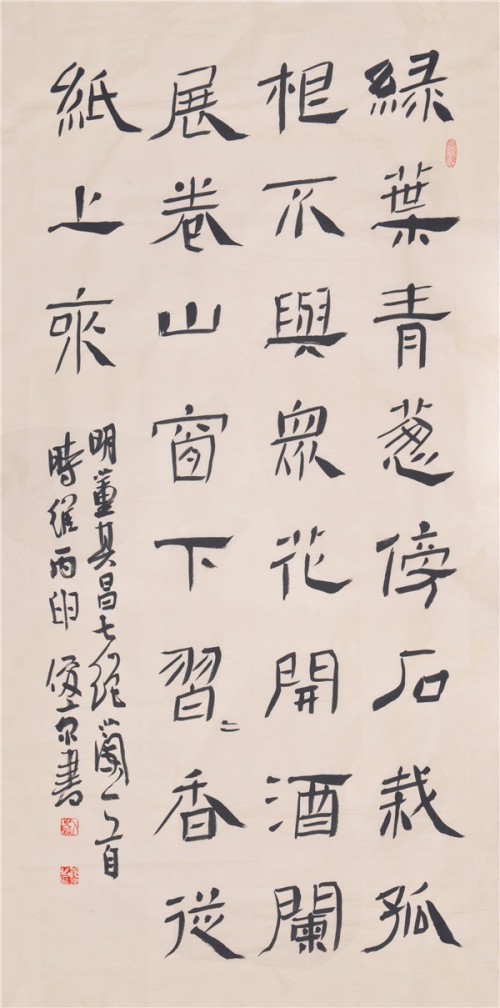 緑葉青葱傍石栽孤
根不與衆花開酒闌
展卷山窗下習〻香從
紙上來
明董其昌七絕蘭一首
時維丙申 書